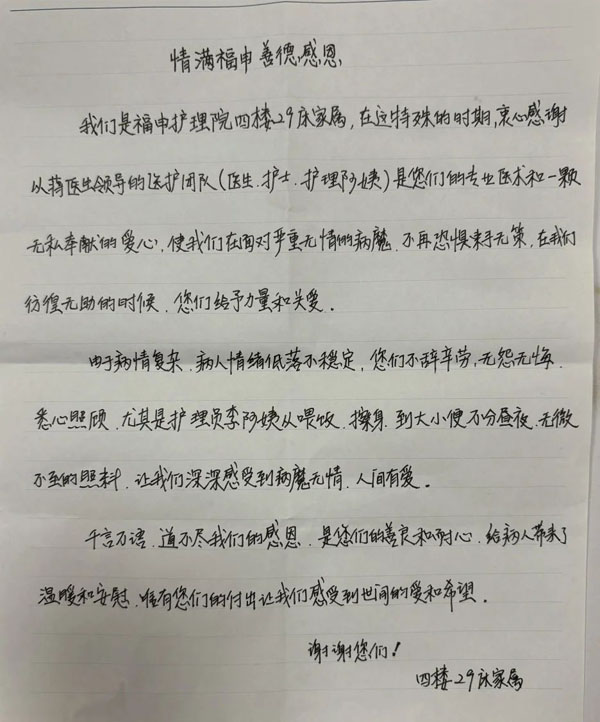 情满福申善德感恩
我们是福申护理院四楼29床家属,在这特殊的时期,衷心感谢
以蒋医生领导的医护团队(医生.护士.护理阿姨)是您们的专业医术和一颗
无私奉献的爱心.使我们在面对严重无情的病魔.不再恐惧束手无策,在我们
彷徨无助的时候.您们给予力量和关爱。
由于病情复杂.病人情绪低落不稳定,您们不辞辛劳,无怨无悔.
悉心照顾.尤其是护理员李阿姨从喂饭.擦身.到大小便不分昼夜.无微
不至的照料.让我们深深感受到病魔无情.人间有爱。
千言万语.道不尽我们的感恩.是您们的善良和耐心.给病人带来了
温暖和安慰.唯有您们的付出让我们感受到世间的爱和希望。
谢谢您们!
四楼29床家属